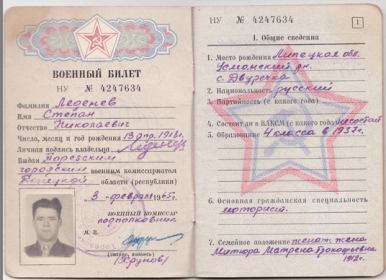 ВОЕННЫЙ БИЛЕТ
НУ № 4247634
Фамилия Леденев
Имя Степан
Отчество Николаевич
Число, месяц и год рождения 1918г.
Личная подпись владельца
Выдан
городским военным комиссариатом
области (республики)
3 февраля 1965г.
Военный комиссар
подполковник
М. П.
(звание, подпись)
НУ № 4247634
1
I. Общие сведения
1. Место рождения Липецкая обл.
Усманский рн.
с. Двуречка
2. Национальность русский
3. Партийность (с какого года)
4. Состоит ли в ВЛКСМ (с какого года) не состоит
5. Образование 4 класса в 1937г.
6. Основная гражданская специальность
моторист.
7. Семейное положение женат, жена
Матрена Прокофьевна
1912г.